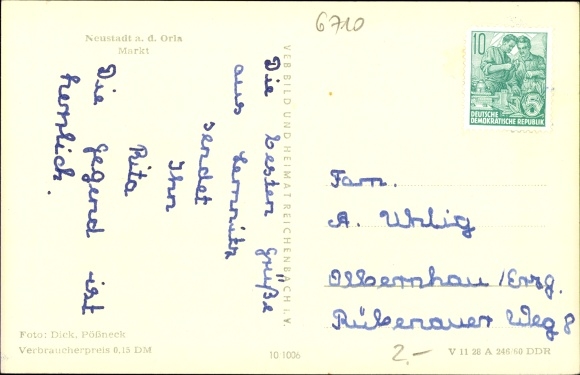 6710
Neustadt a. d. Orla
Markt
Die besten Grüße
aus Lemnitz
sendet
Ihn
Rita
Die Gegend ist
herrlich.
VEB BILD UND HEIMAT REICHENBACH i. V.
10
DEUTSCHE
DEMOKRATISCHE REPUBLIK
Fam.
A. Uhlig
Olbernhau / Erzg.
Rübenauer Weg 8
Foto: Dick, Pößneck
Verbraucherpreis 0,15 DM
10 1006
2.-
V 11 28 A 246/60 DDR